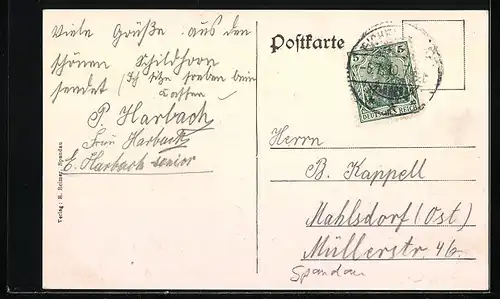 Viele Grüße aus den
schönen Schildhorn
sendet (Ich sitze soeben beim
Kaffee)
P. Harbach
Frau Harbach
E. Harbach senior
Verlag: R. Reimer, Spandau
Postkarte
5 5
DEUTSCHES REICH
Herrn
B. Kappell
Mahlsdorf (Ost)
Müllerstr. 46.
Spandau